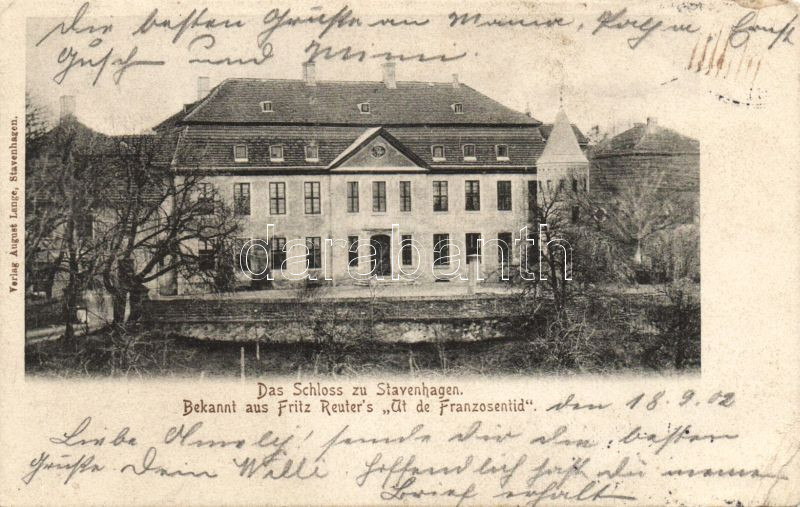 die besten Grüße an Mama, Papa, Ernst
Gusch und Mimi.
Verlag August Lange, Stavenhagen.
darabanth
Das Schloss zu Stavenhagen.
Bekannt aus Fritz Reuter's „Ut de Franzosentid".
den 18.9.02
Liebe! sende Dir die besten
Grüße Dein Willi Hoffendlich hast du meinen
Brief erhalt